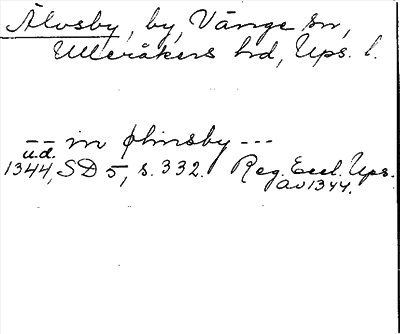 Älvsby, by, Vänge sn,
Ulleråkers hd, Ups. l.
-- in øhnsby ---
u.d.
1344, SD 5, s. 332. Reg. Eccl. Ups.
av 1344.